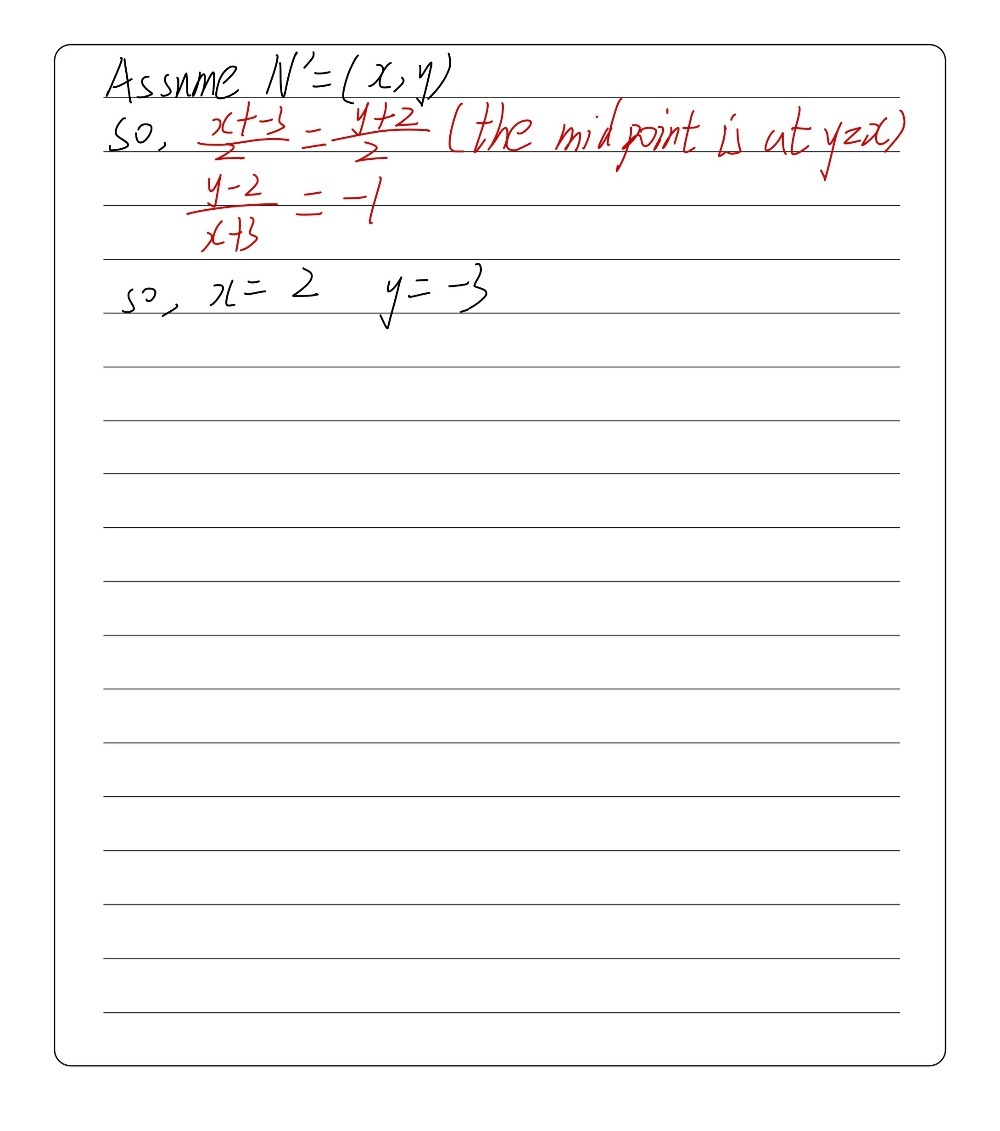 Assume N'=(x,y)
so, \frac{x+-3}{2} = \frac{y+2}{2} (the midpoint is at y=x)
\frac{y-2}{x+3} = -1
so, x= 2 y= -3